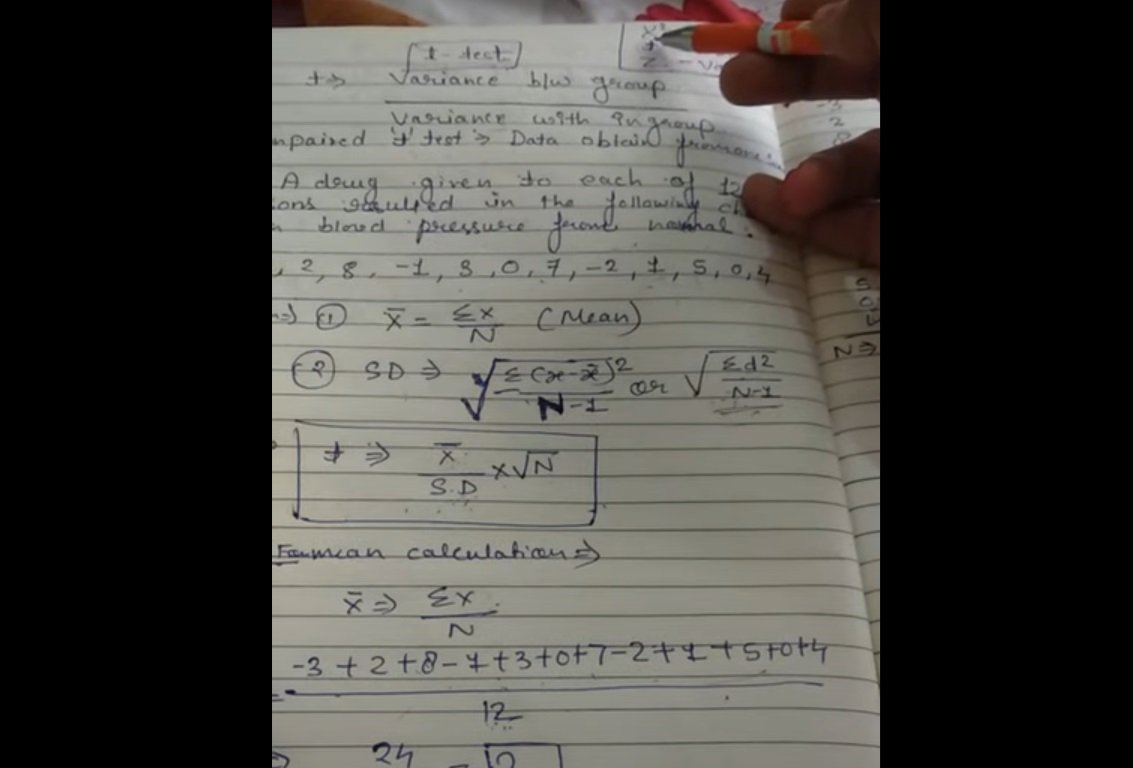 t-test
x²
t
z
t ⇒ Variance b/w group
Variance with in group
npaired 't' test ⇒ Data obtain
A drug given to each of 12
ions resulted in the following ch
blood pressure from normal:
, 2, 8, -1, 3, 0, 7, -2, 1, 5, 0, 4
⇒ ① x̄ = Σx/N (Mean)
② SD ⇒ √(Σ(x-x̄)²/N-1) or √(Σd²/N-1)
t ⇒ x̄/S.D × √N
For mean calculation ⇒
x̄ ⇒ Σx/N
-3 + 2 + 8 - 1 + 3 + 0 + 7 - 2 + 1 + 5 + 0 + 4
12
24 = 2
-3
2
8
5
0
N ⇒